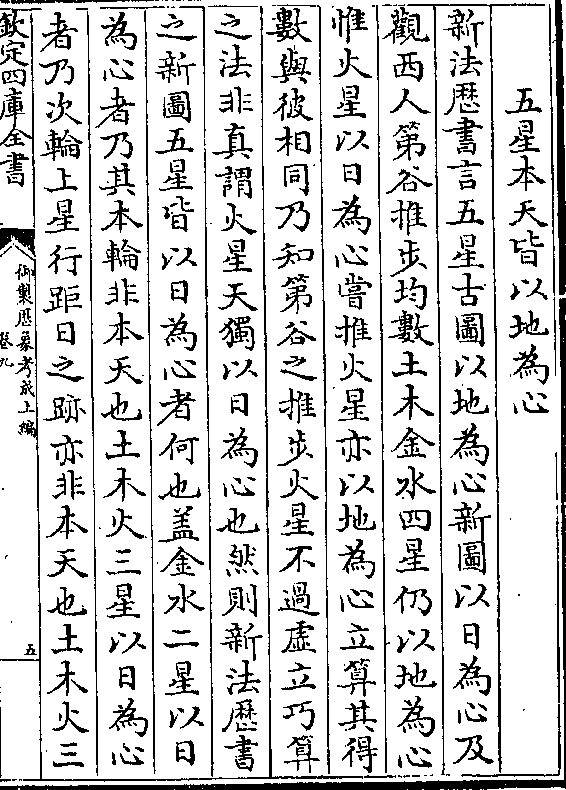 五星本天皆以地為心
新法歴書言五星古圖以地為心新圖以日為心及
觀西人第谷推步均數土木金水四星仍以地為心
惟火星以日為心嘗推火星亦以地為心立算其得
數與彼相同乃知第谷之推步火星不過虛立巧算
之法非真謂火星天獨以日為心也然則新法歴書
之新圖五星皆以日為心者何也盖金水二星以日
為心者乃其本輪非本天也土木火三星以日為心
者乃次輪上星行距日之跡亦非本天也土木火三
欽定四庫全書
御製歴象考成上編
卷九
五